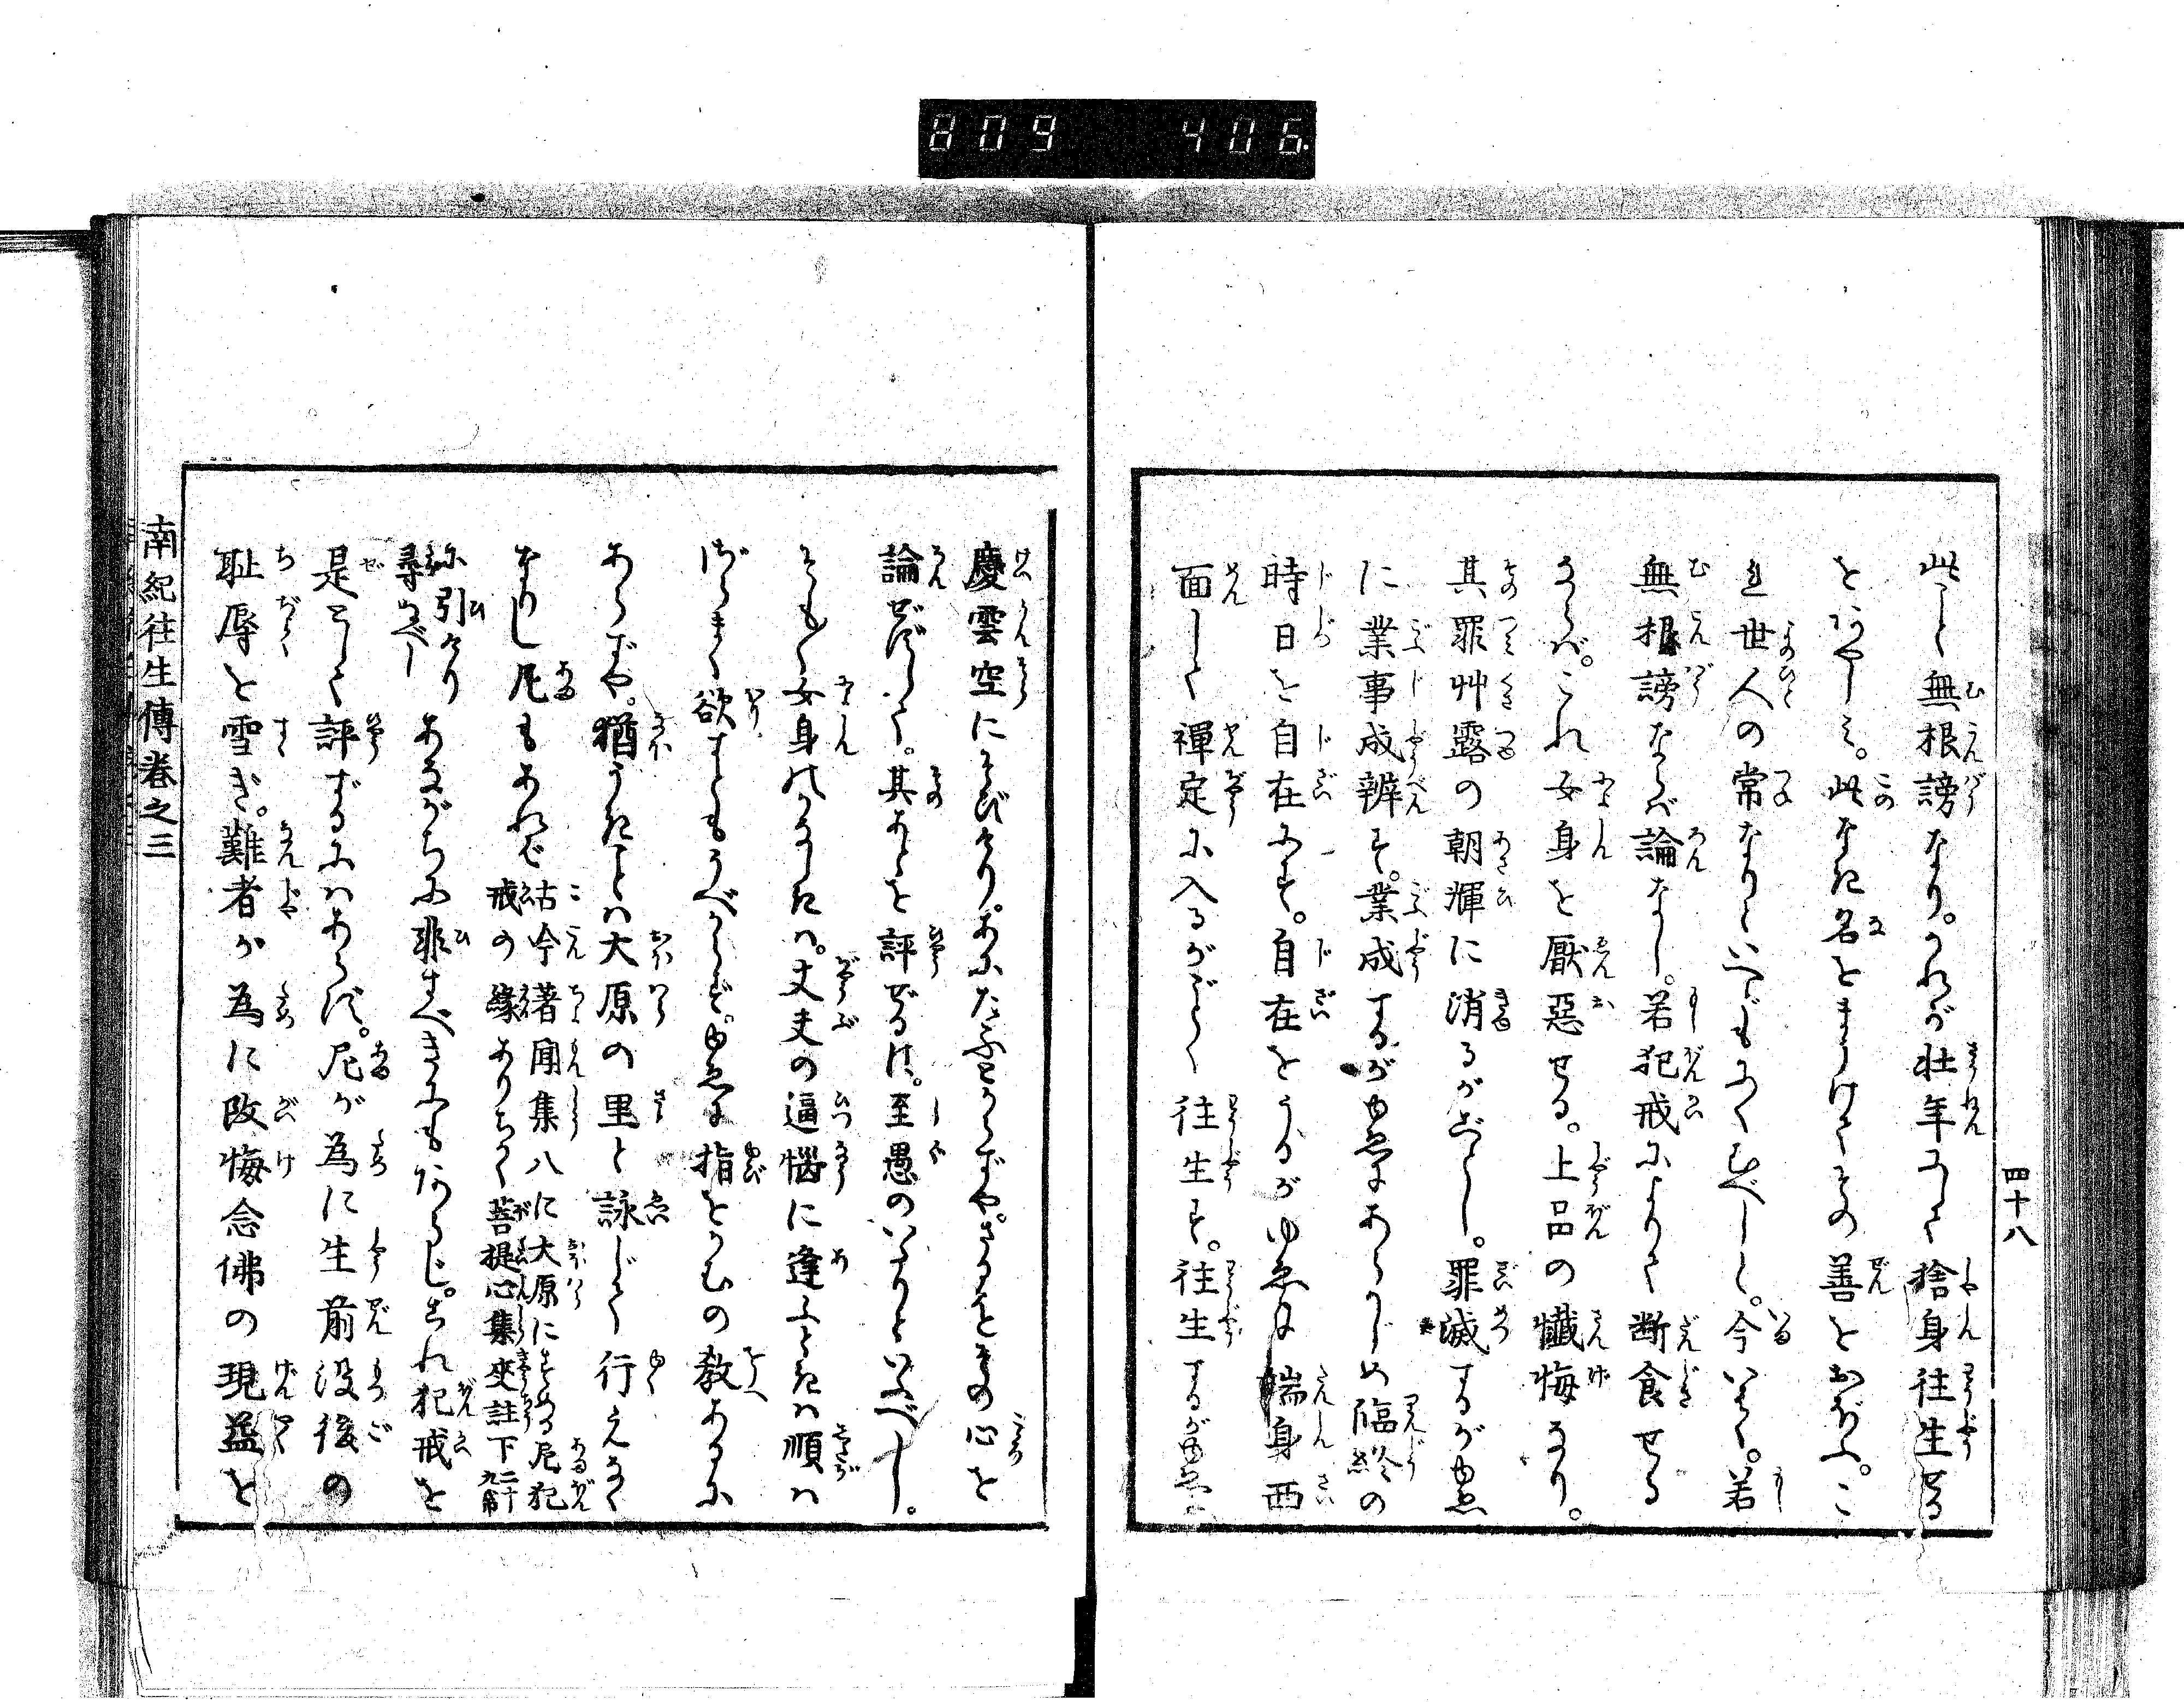 809 406.
四十八
此して無根謗なり。かれが壮年にして捨身往生せる
をねやしミ。此なき名をまうけてその善をおほふ。こ
れ世人の常なりといへどもふくむべしと。今いはく。若
無根謗ならば論なし。若犯戒によりて断食せる
ならば。これ女身を厭惡せる。上品の懺悔なり。
其罪艸露の朝輝に消るがごとし。罪滅するがゆゑ
に業事成辨す。業成するがゆゑにあらかじめ臨終の
時日を自在にす。自在をうるがゆゑに端身西
面して禅定に入るがごとく往生す。往生するがゆゑに
慶雲空にそびけり。あにたふとからずや。さるをその心を
論ぜずして。其あとを評ずるは。至愚のいたりといふべし。
そも〳〵女身のかなしきハ。丈夫の逼惱に逢ふときハ順ハ
ざらまく欲すともうべからず。ゆゑに指をかむの教あるに
あらずや。猶うきことハ大原の里と詠じて行えなく
なりし尼もあれど
古今著聞集八に大原にすめる尼犯
戒の縁ありちかく菩提心集夾註下二十九雨
弥引けり
尋ぬべし
あながちに非すべきにもあらじ。これ犯戒を
是として評ずるにハあらず。尼が為に生前没後の
耻辱を雪ぎ。難者が為に改悔念佛の現益を
南紀往生傳巻之三